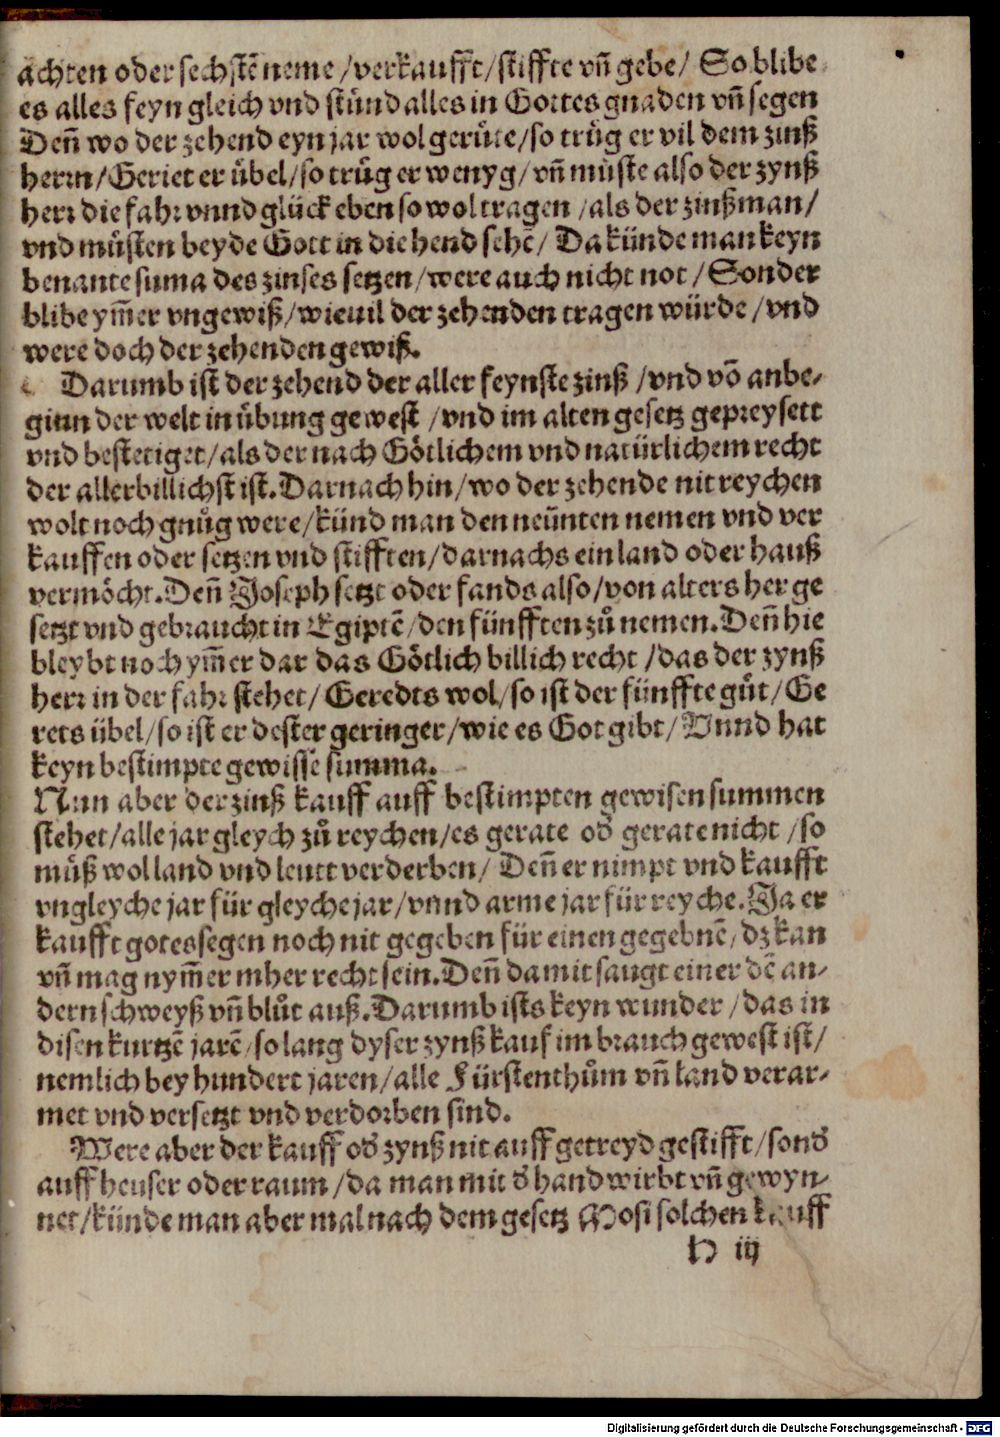 achten oder sechstē neme /verkaufft/stiffte vn̄ gebe/ So blibe
es alles feyn gleich vnd stünd alles in Gottes gnaden vn̄ segen
Deñ wo der zehend eyn jar wol gerůte/so trůg er vil dem zinß
herrn/Geriet er übel/so trůg er wenyg/vn̄ můste also der zynß
herr die fahr vnnd glück eben so wol tragen /als der zinßman/
vnd můsten beyde Gott in die hend sehē/ Da künde man keyn
benante suma des zinses setzen/were auch nicht not/Sonder
blibe ym̄er vngewiß/wieuil der zehenden tragen würde/vnd
were doch der zehenden gewiß.
Darumb ist der zehend der aller feynste zinß /vnd vō anbe-
ginn der welt in übung gewest /vnd im alten gesetz gepreysett
vnd bestetiget/als der nach Götlichem vnd natürlichem recht
der allerbillichst ist. Darnach hin/wo der zehende nit reychen
wolt noch gnůg were/künd man den neünten nemen vnd ver
kauffen oder setzen vnd stifften/darnachs ein land oder hauß
vermöcht. Deñ Joseph setzt oder fands also/von alters her ge
setzt vnd gebraucht in Egiptē/den fünfften zů nemen. Deñ hie
bleybt noch ym̄er dar das Götlich billich recht /das der zynß
herr in der fahr stehet/Geredts wol/so ist der fünffte gůt/Ge
rets übel/so ist er dester geringer/wie es Got gibt/Vnnd hat
keyn bestimpte gewisse summa.
Nun aber der zinß kauff auff bestimpten gewisen summen
stehet/alle jar gleych zů reychen/es gerate od̕ gerate nicht /so
můß wol land vnd leutt verderben/ Deñ er nimpt vnd kaufft
vngleyche jar für gleyche jar/vnnd arme jar für reyche. Ja er
kaufft gotes segen noch nit gegeben für einen gegebnē/dz kan
vn̄ mag nym̄er mher recht sein. Deñ damit saugt einer dē an-
dern schweyß vn̄ blůt auß. Darumb ists keyn wunder /das in
disen kurtzē jarē/so lang dyser zynß kauf im brauch gewest ist/
nemlich bey hundert jaren/alle Fürstenthům vn̄ land verar-
met vnd versetzt vnd verdorben sind.
Were aber der kauff od̕ zynß nit auff getreyd gestifft/sond̕
auff heuser oder raum /da man mit d̕ hand wirbt vn̄ gewyn-
net/künde man aber mal nach dem gesetz Mosi solchen kauff
H iij
Digitalisierung gefördert durch die Deutsche Forschungsgemeinschaft - DFG